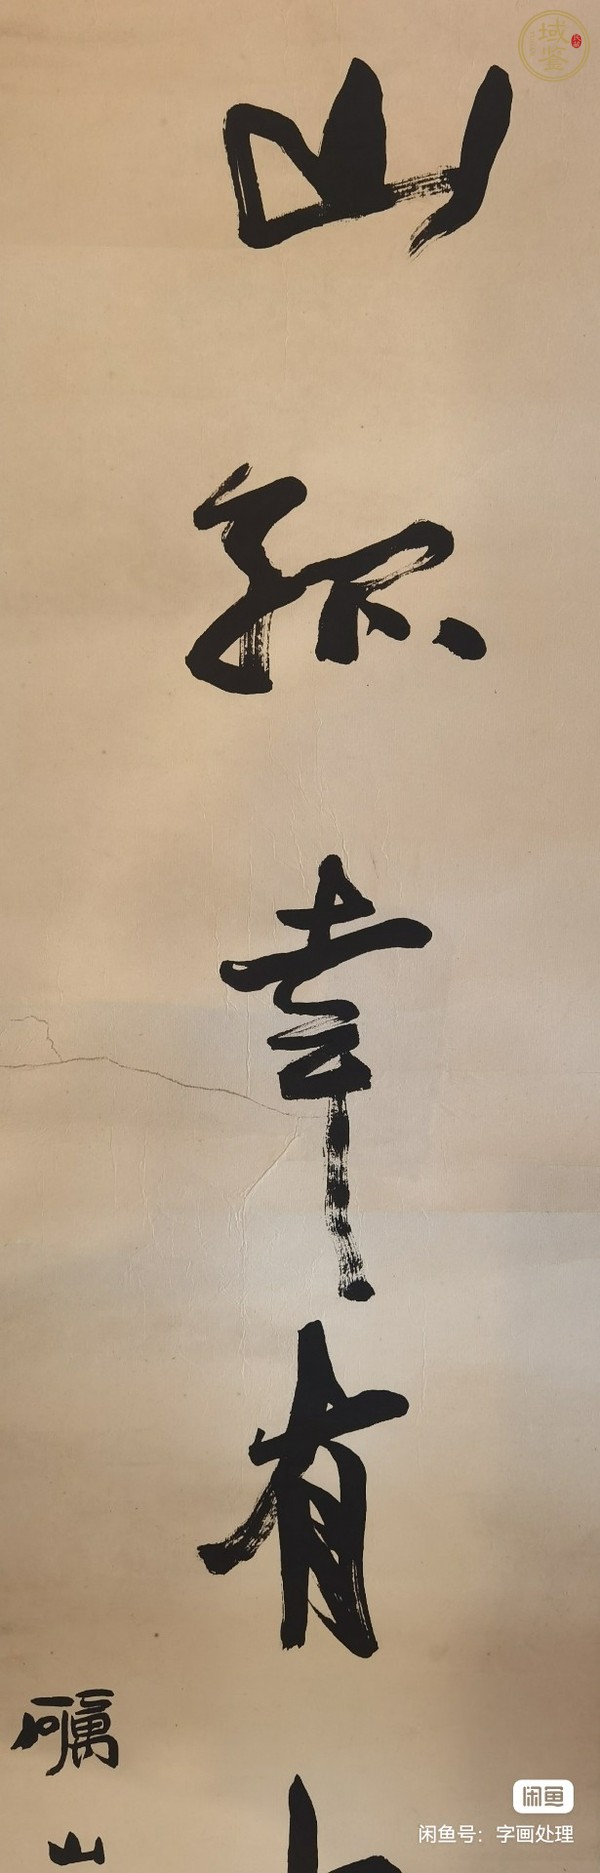 山孤幸有
礪山
域鉴
闲鱼
闲鱼号：字画处理